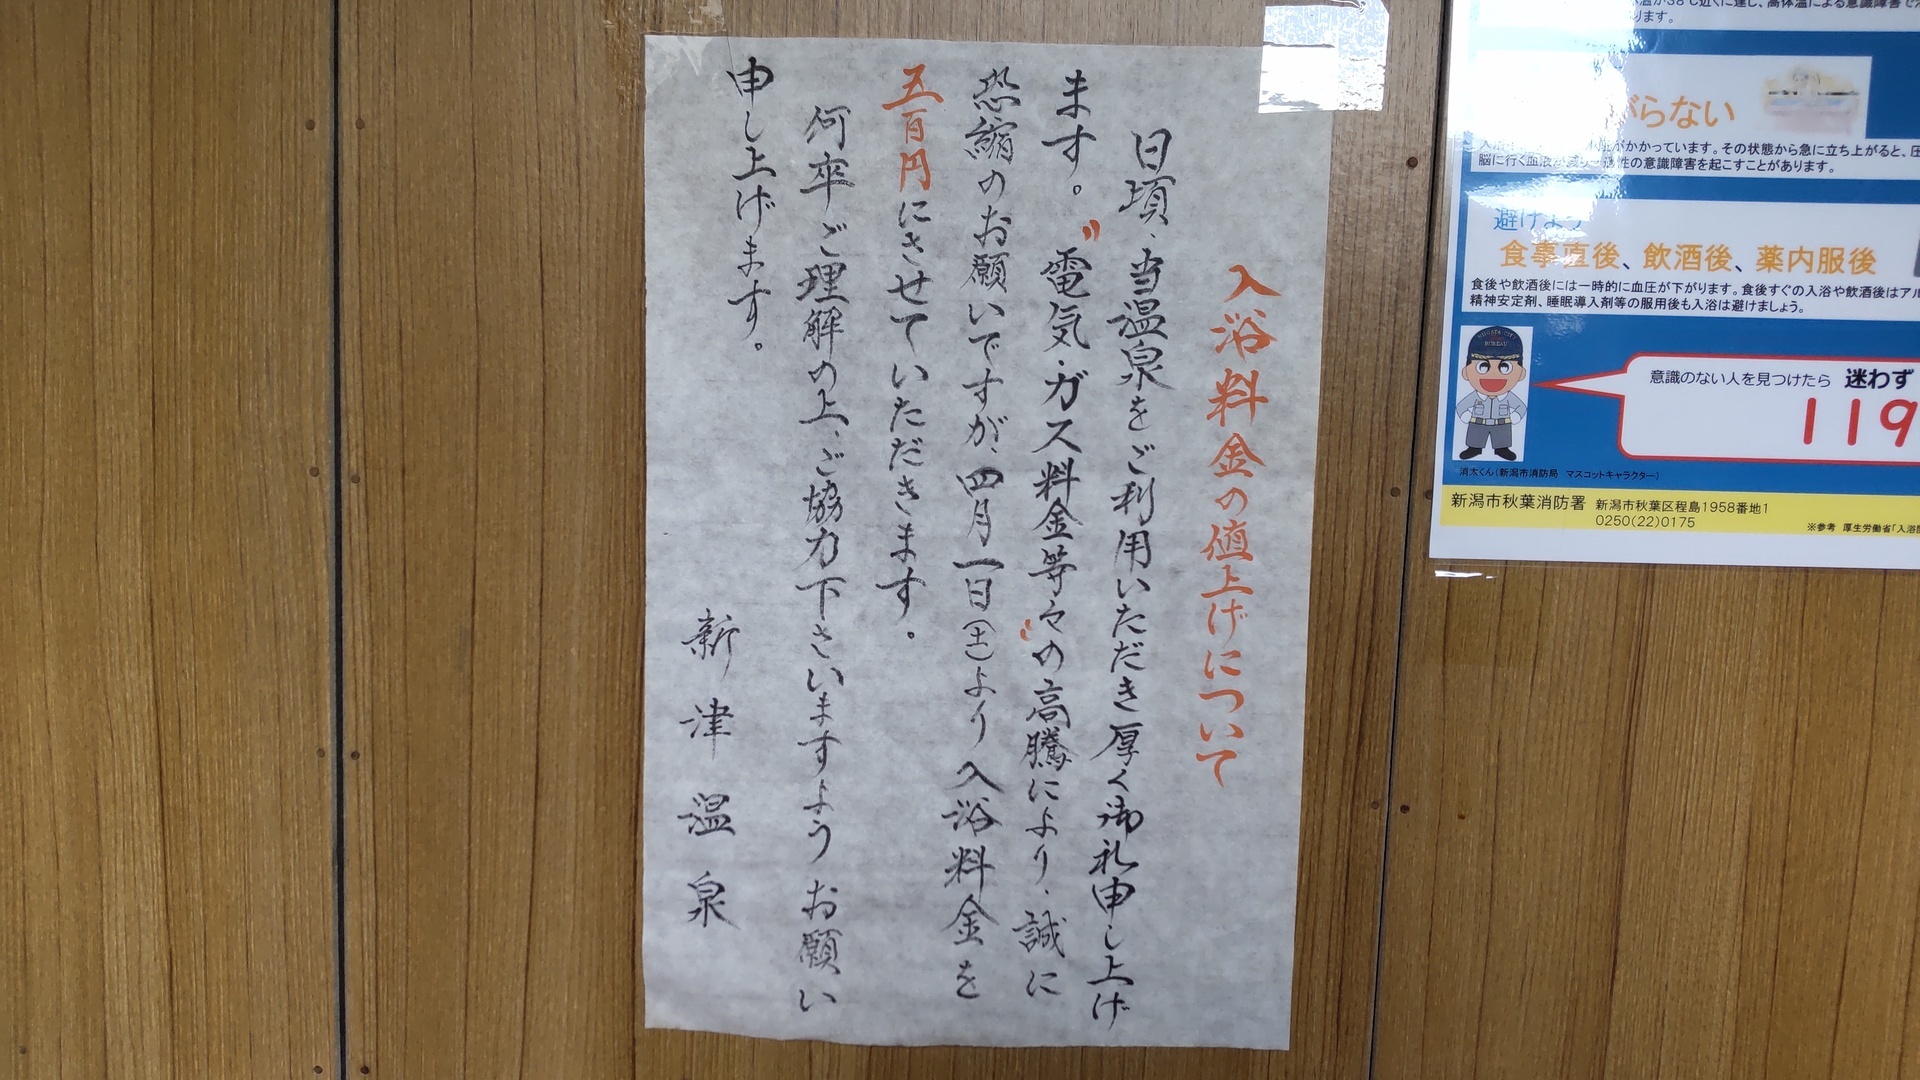 入浴料金の値上げについて
日頃、当温泉をご利用いただき厚く御礼申し上げ
ます。〝電気・ガス料金等々〟の高騰により、誠に
恐縮のお願いですが、四月一日㈯より入浴料金を
五百円にさせていただきます。
何卒ご理解の上、ご協力下さいますようお願い
申し上げます。
新津温泉
がらない
かかっています。その状態から急に立ち上がると、圧
性の意識障害を起こすことがあります。
避けよう
食事直後、飲酒後、薬内服後
食後や飲酒後には一時的に血圧が下がります。食後すぐの入浴や飲酒後はアル
精神安定剤、睡眠導入剤等の服用後も入浴は避けましょう。
意識のない人を見つけたら 迷わず
119
消太くん(新潟市消防局 マスコットキャラクター)
新潟市秋葉消防署 新潟市秋葉区程島1958番地1
0250(22)0175
※参考 厚生労働省「入浴